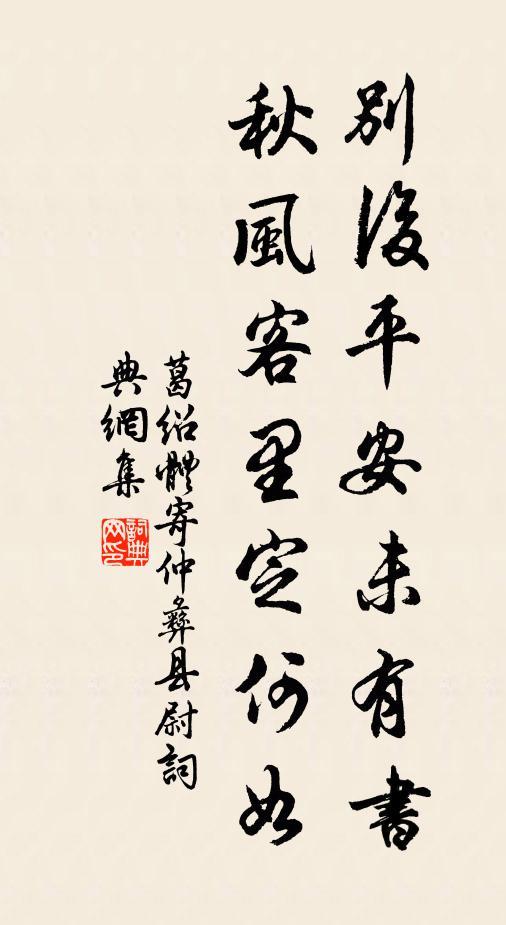 別後平安未有書
秋風客里定何如
葛紹體寄仲彝县尉詞
典網集
詞典
网印